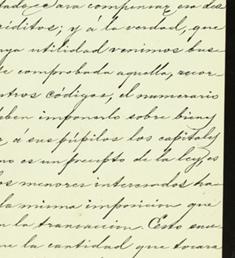 para compensar esa des
réditos; y á la verdad, que
ya utilidad venimos bus
te comprobada aquella, recor
ntros códigos, el numerario
eben imponerlo sobre bienes
r, á sus púpilos los capitales
no es un precepto de la ley, es
los menores interesados ha
la misma imposicion que
n la transacion. Esto suce
ue la cantidad que tocara